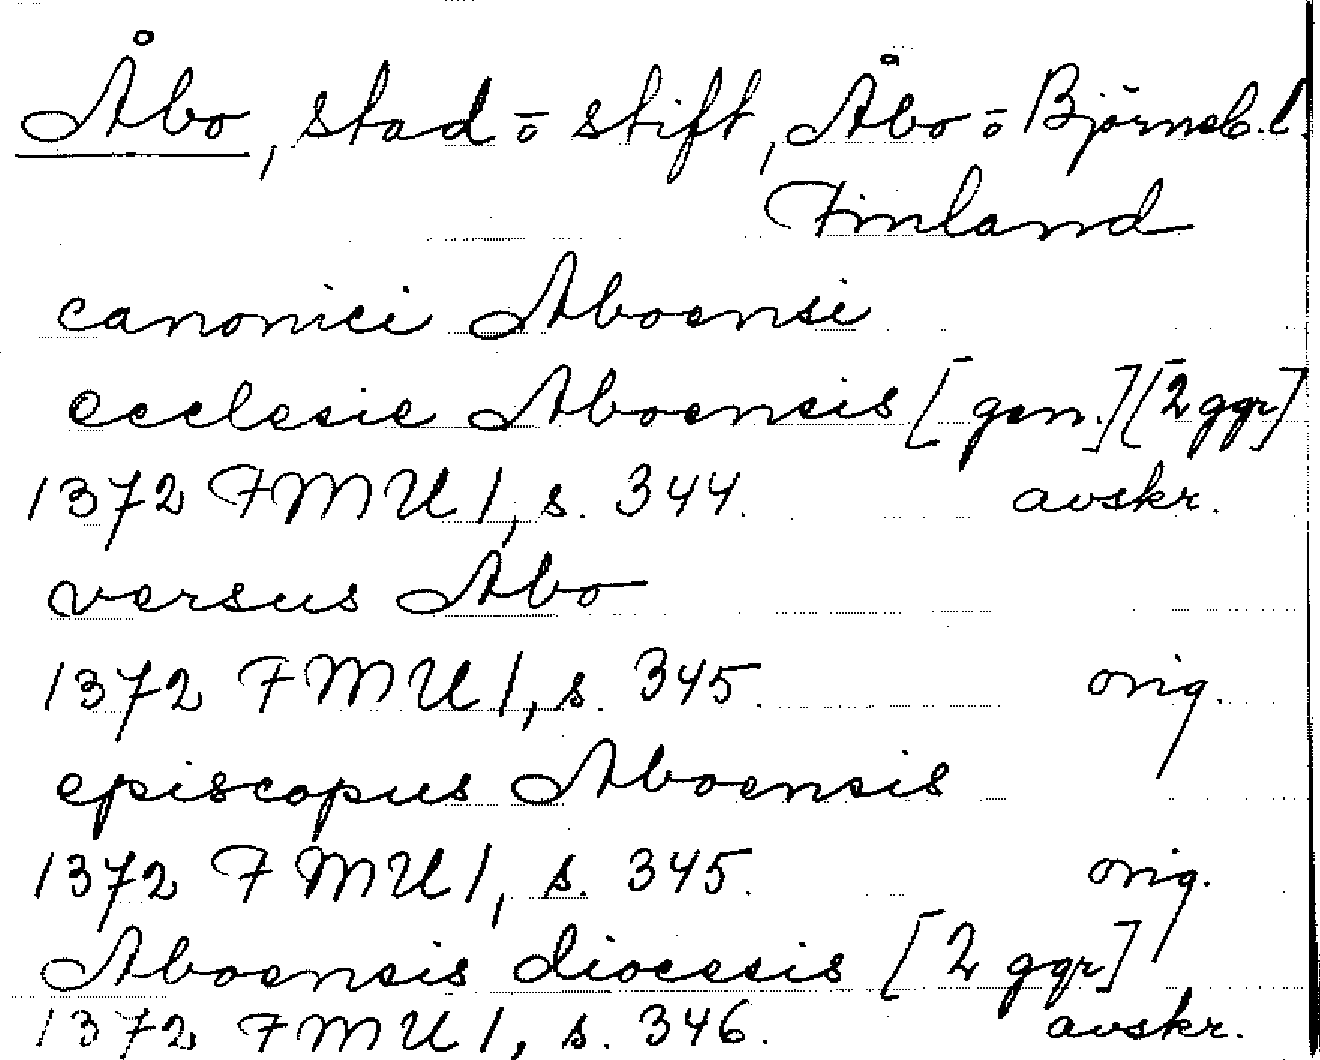 Åbo, stad o stift, Åbo o Björneb.l.
Finland
canonici Aboensi
ecclesie Aboensis [gen.] [2 ggr]
1372 FMU 1, s. 344. avskr.
versus Abo
1372 FMU 1, s. 345. orig.
episcopus Aboensis
1372 FMU 1, s. 345. orig.
Aboensis diocesis [2 ggr]
1372 FMU 1, s. 346. avskr.